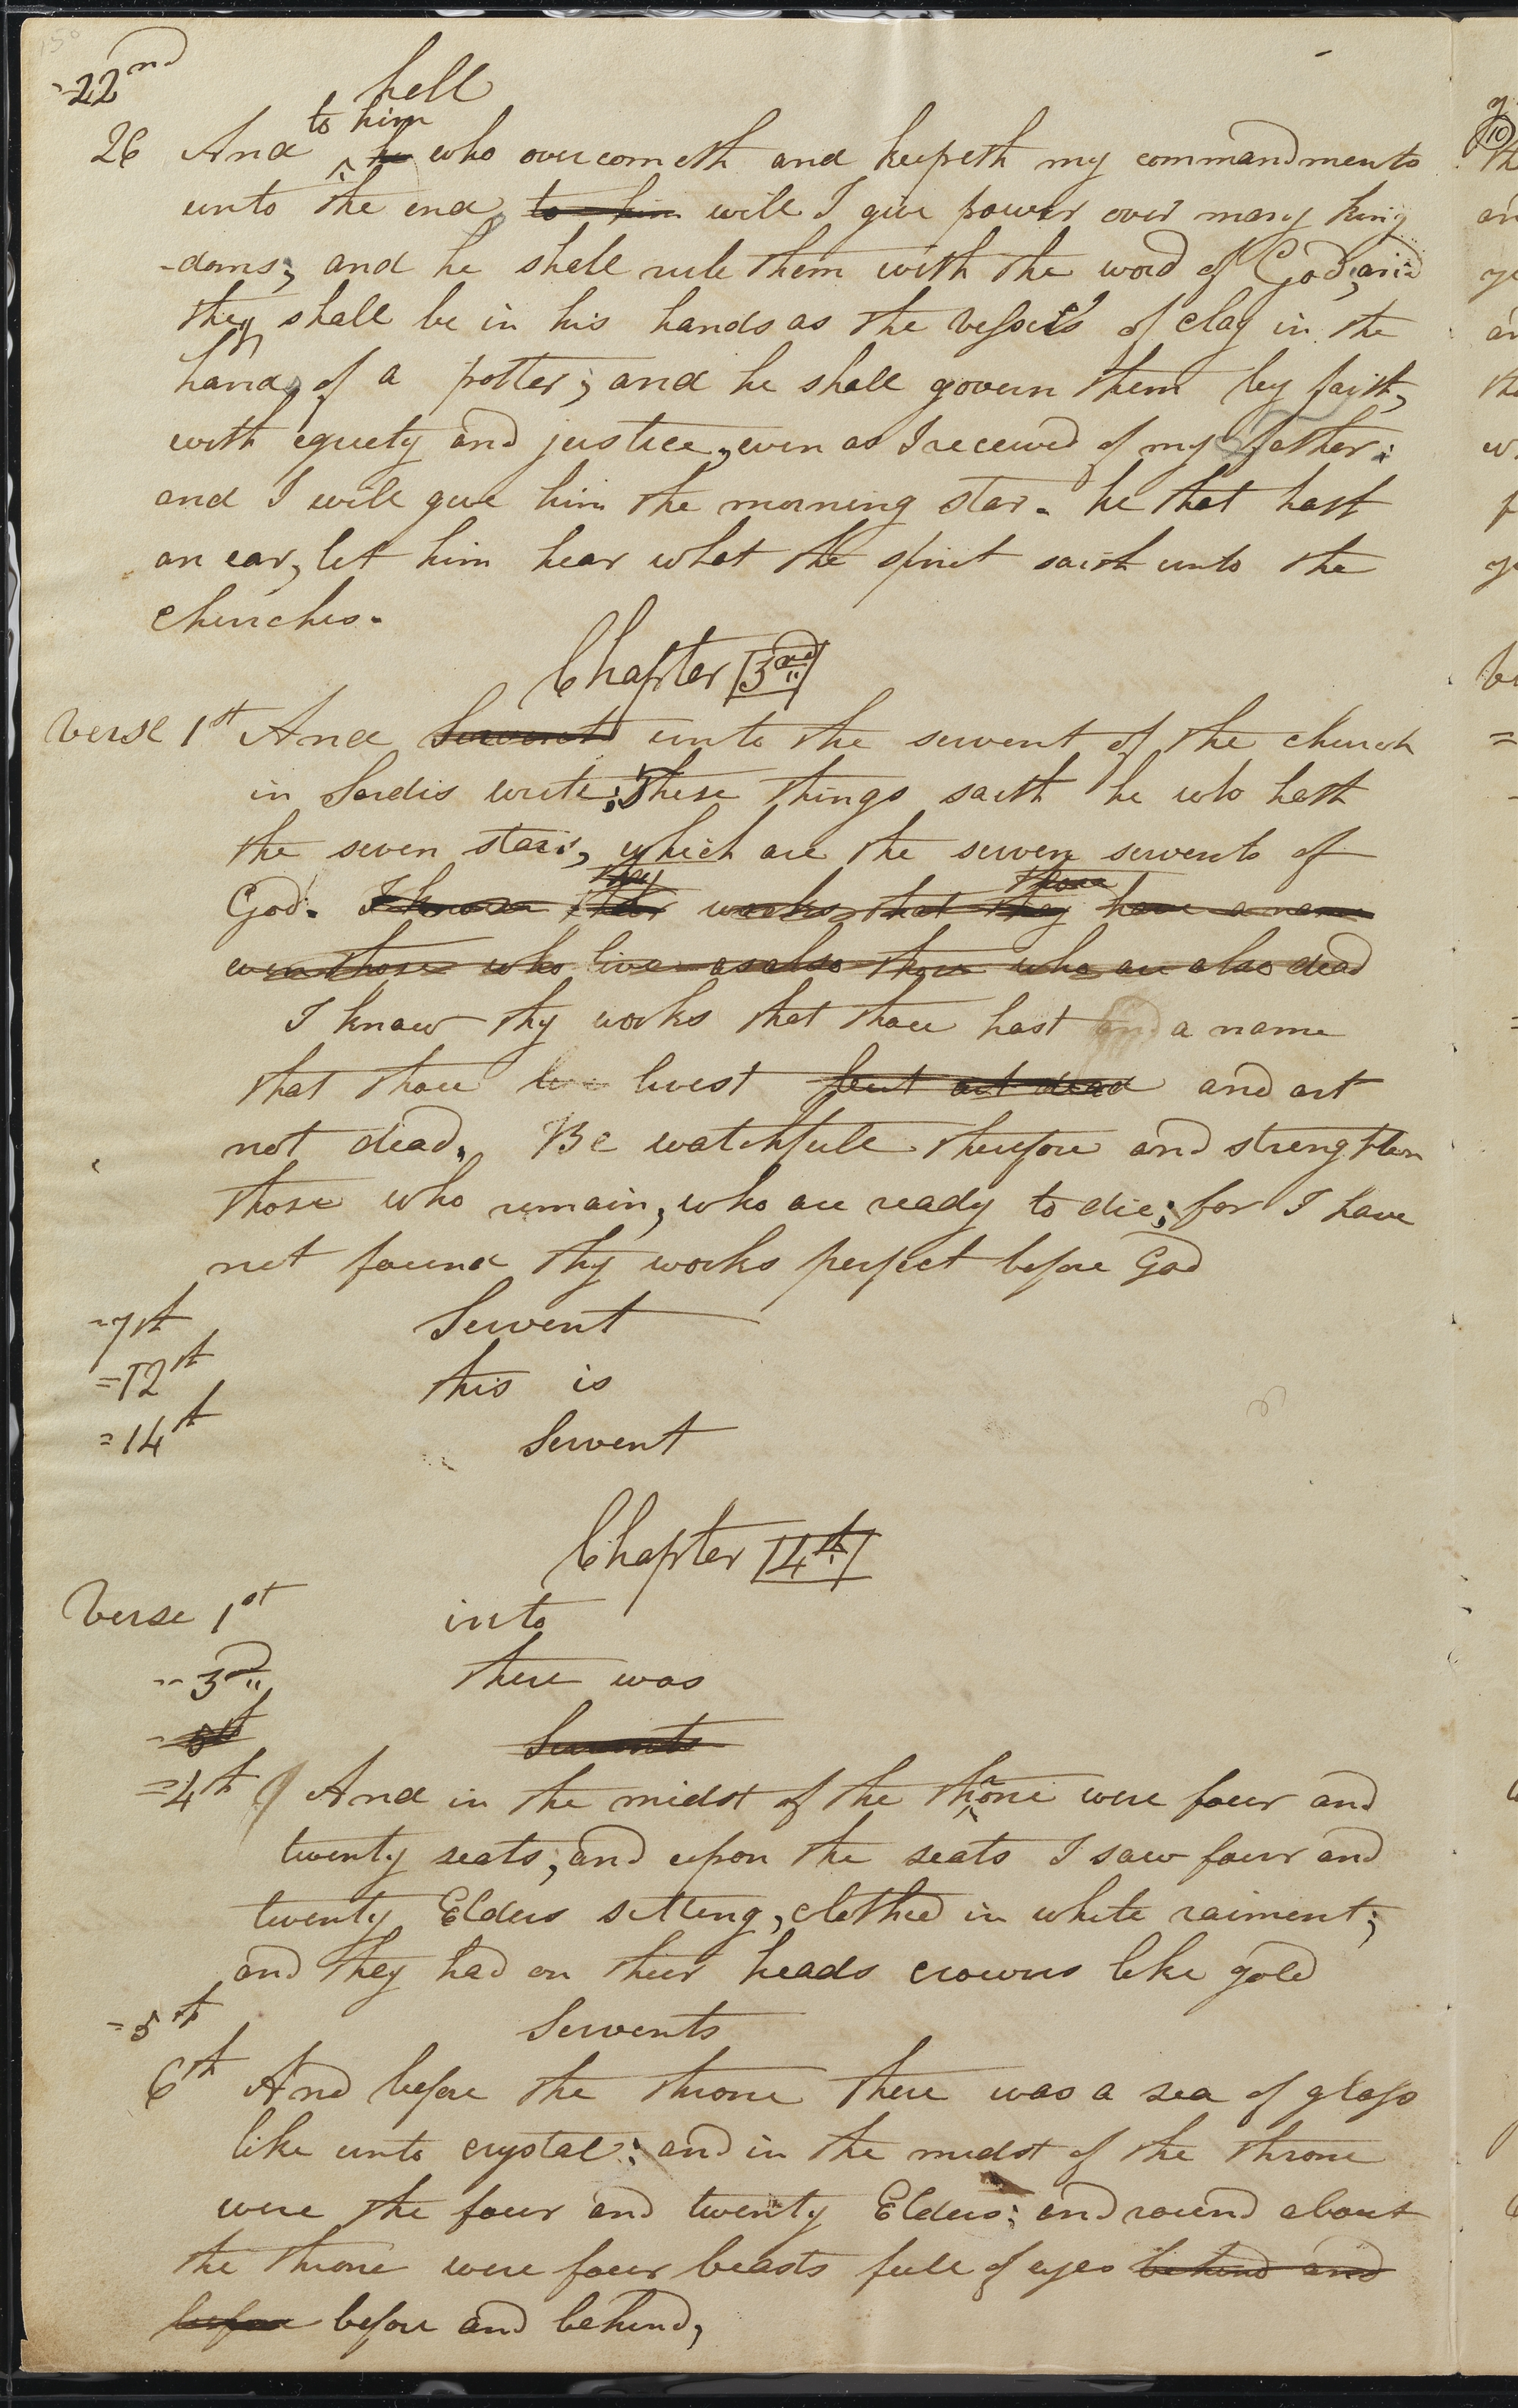 150
=22nd hell
to him
26 And ^ he who overcometh and keepeth my commandments
unto the end, to him will I give power over many king
-doms; and he shall rule them with the word of God; and
they shall be in his hands as the vessels of clay in the
hands of a potter; and he shall govern them by faith,
with equety and justice, even as I received of my father:
and I will give him the morning star. he that hath
an ear, let him hear what the spirit saith unto the
churches.
Chapter 3rd
Verse 1st And Servent unto the servent of the church
in Sardis write; These things saith he who hath
the seven stars, which are the seven servents of
thy thou
God. I know their works that they have a name
even those who live as also those who are also dead
I know thy works that thou hast a name
that thou live livest but art dead and art
not dead. Be watchfull therefore and strengthen
those who remain, who are ready to die; for I have
not found thy works perfect before God
=7th Servent
=12th this is
=14th Servent
Chapter 4th
Verse 1st into
=3rd there was
=5th Servents
=4th And in the midst of the throne were four and
twenty seats; and upon the seats I saw four and
twenty Elders setting, clothed in white raiment;
and they had on their heads crowns like gold
=5th Servents
6th And before the throne there was a sea of glass
like unto crystal; and in the midst of the throne
were the four and twenty Elders; and round about
the throne were four beasts full of eyes behind and
before before and behind,